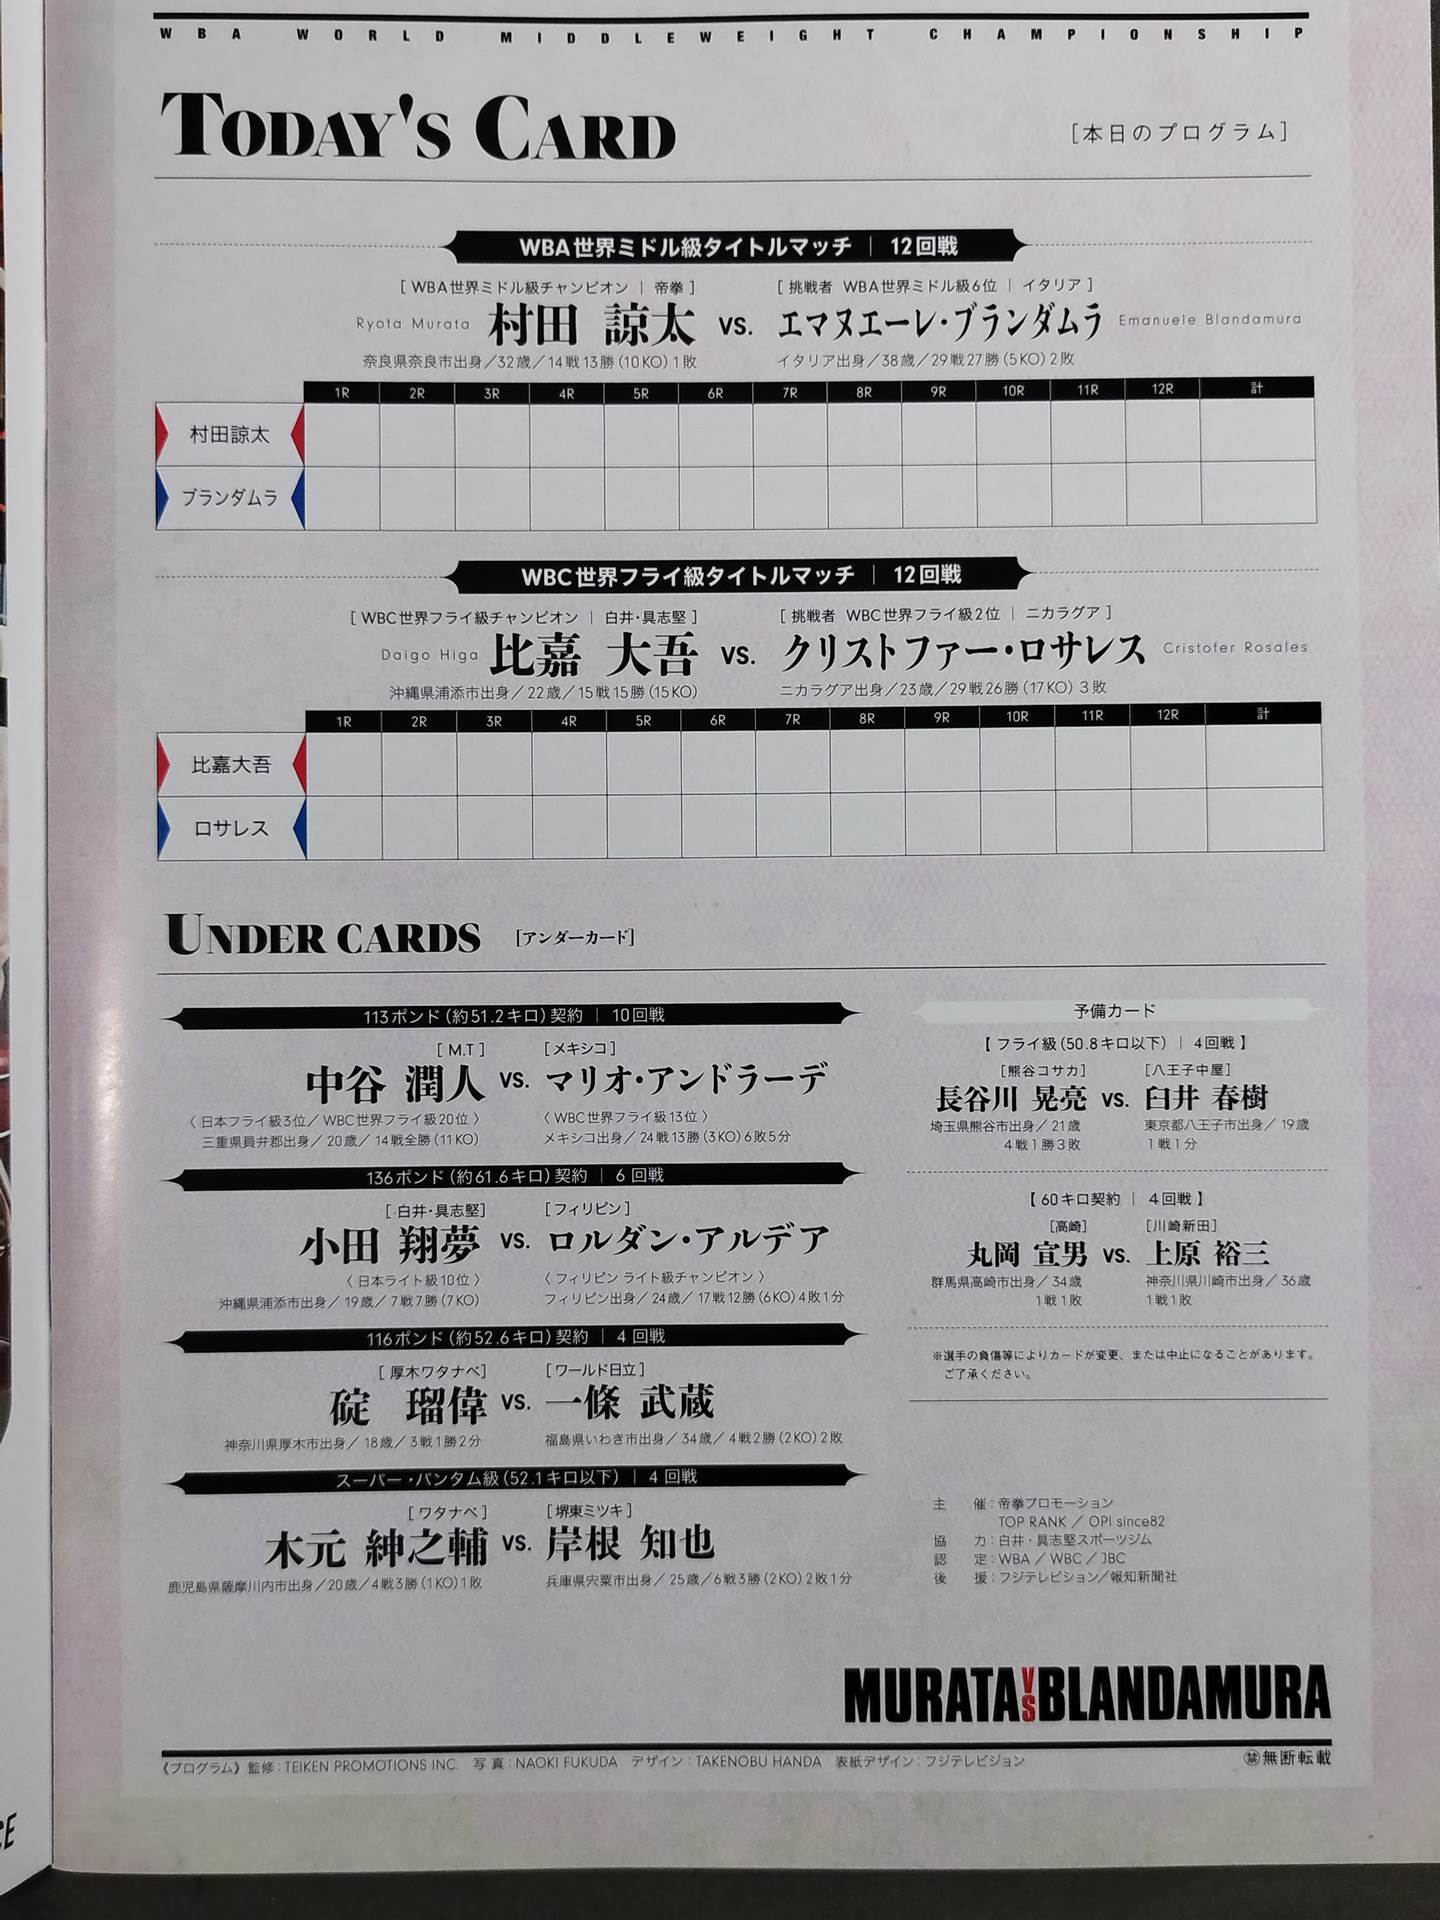 WBA WORLD MIDDLEWEIGHT CHAMPIONSHIP
TODAY'S CARD
[本日のプログラム]
WBA世界ミドル級タイトルマッチ | 12回戦
[ WBA世界ミドル級チャンピオン | 帝拳 ]
[ 挑戦者 WBA世界ミドル級6位 | イタリア ]
Ryota Murata 村田 諒太 vs. エマヌエーレ・ブランダムラ Emanuele Blandamura
奈良県奈良市出身／32歳／14戦13勝(10KO)1敗
イタリア出身／38歳／29戦27勝(5KO)2敗
1R 2R 3R 4R 5R 6R 7R 8R 9R 10R 11R 12R 計
村田諒太
ブランダムラ
WBC世界フライ級タイトルマッチ | 12回戦
[ WBC世界フライ級チャンピオン | 白井・具志堅 ]
[ 挑戦者 WBC世界フライ級2位 | ニカラグア ]
Daigo Higa 比嘉 大吾 vs. クリストファー・ロサレス Cristofer Rosales
沖縄県浦添市出身／22歳／15戦15勝(15KO)
ニカラグア出身／23歳／29戦26勝(17KO)3敗
1R 2R 3R 4R 5R 6R 7R 8R 9R 10R 11R 12R 計
比嘉大吾
ロサレス
UNDER CARDS [アンダーカード]
113ポンド(約51.2キロ)契約 | 10回戦
[ M.T ] [メキシコ]
中谷 潤人 vs. マリオ・アンドラーデ
〈 日本フライ級3位／WBC世界フライ級20位 〉
〈 WBC世界フライ級13位 〉
三重県員弁郡出身／20歳／14戦全勝(11KO)
メキシコ出身／24戦13勝(3KO)6敗5分
136ポンド(約61.6キロ)契約 | 6回戦
[白井・具志堅] [フィリピン]
小田 翔夢 vs. ロルダン・アルデア
〈 日本ライト級10位 〉
〈 フィリピン ライト級チャンピオン 〉
沖縄県浦添市出身／19歳／7戦7勝(7KO)
フィリピン出身／24歳／17戦12勝(6KO)4敗1分
116ポンド(約52.6キロ)契約 | 4回戦
[厚木ワタナベ] [ワールド日立]
碇 瑠偉 vs. 一條 武蔵
神奈川県厚木市出身／18歳／3戦1勝2分
福島県いわき市出身／34歳／4戦2勝(2KO)2敗
スーパー・バンタム級(52.1キロ以下) | 4回戦
[ワタナベ] [堺東ミツキ]
木元 紳之輔 vs. 岸根 知也
鹿児島県薩摩川内市出身／20歳／4戦3勝(1KO)1敗
兵庫県宍粟市出身／25歳／6戦3勝(2KO)2敗1分
予備カード
【 フライ級(50.8キロ以下) | 4回戦 】
[熊谷コサカ] [八王子中屋]
長谷川 晃亮 vs. 臼井 春樹
埼玉県熊谷市出身／21歳
東京都八王子市出身／19歳
4戦1勝3敗
1戦1分
【 60キロ契約 | 4回戦 】
[高崎] [川崎新田]
丸岡 宣男 vs. 上原 裕三
群馬県高崎市出身／34歳
神奈川県川崎市出身／36歳
1戦1敗
1戦1敗
※選手の負傷等によりカードが変更、または中止になることがあります。
ご了承ください。
主 催：帝拳プロモーション
TOP RANK ／ OPI since82
協 力：白井・具志堅スポーツジム
認 定：WBA／WBC／JBC
後 援：フジテレビション／報知新聞社
MURATA VS BLANDAMURA
《プログラム》監修：TEIKEN PROMOTIONS INC. 写真：NAOKI FUKUDA デザイン：TAKENOBU HANDA 表紙デザイン：フジテレビジョン
㊙無断転載